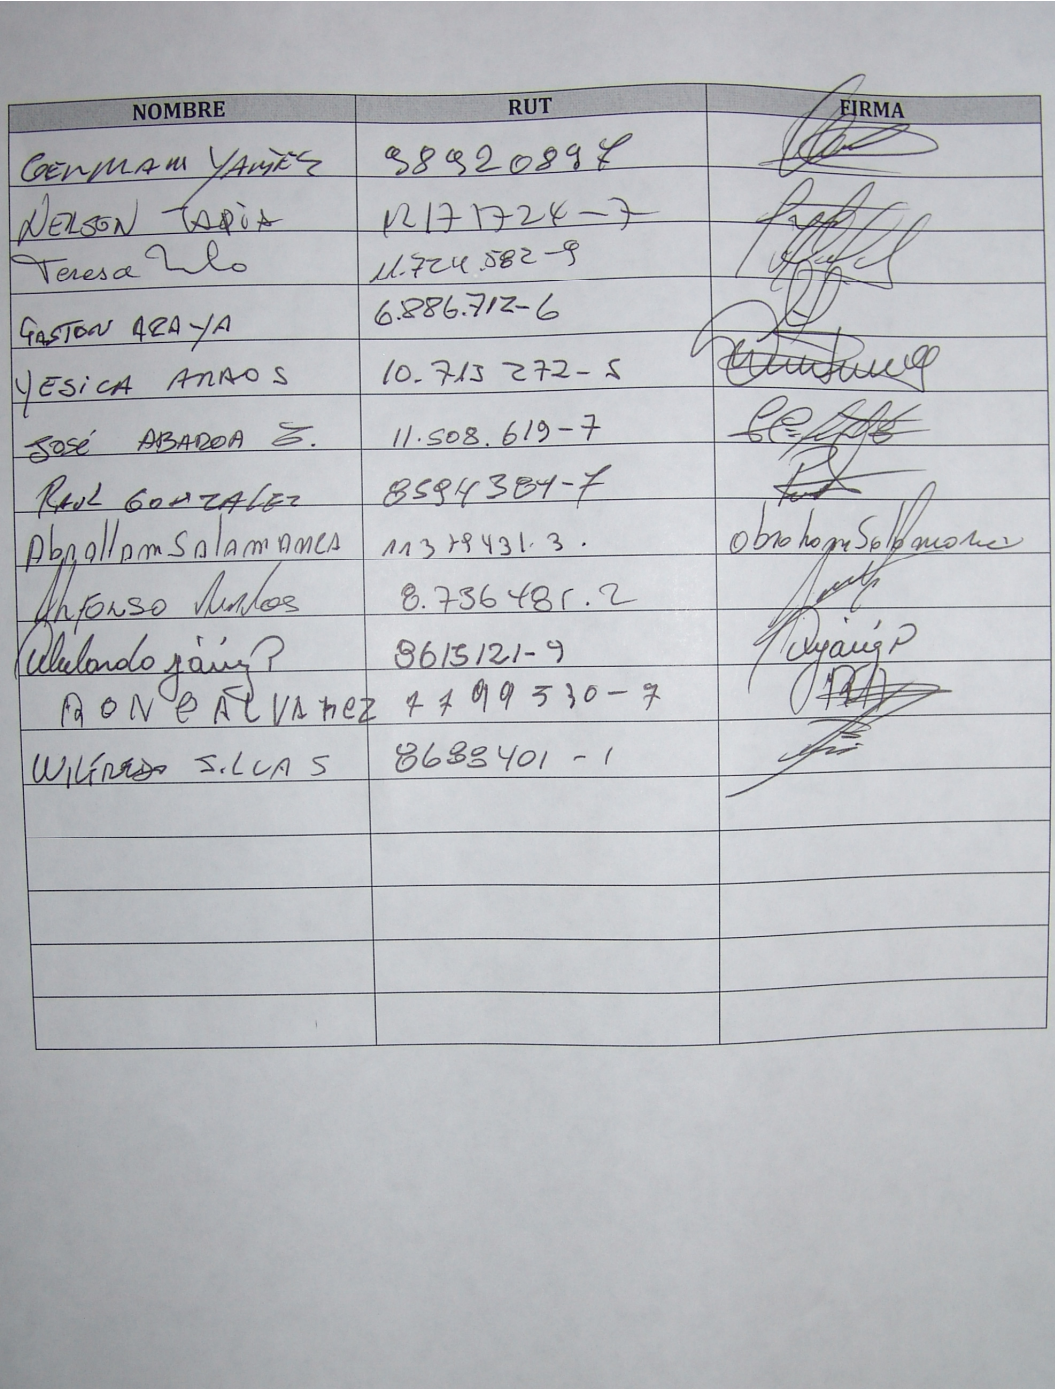 NOMBRE RUT FIRMA
GERMAM YAÑEZ
NELSON TAPIA 12171724-7
Teresa 11.724.582-9
GASTON ARAYA 6.886.712-6
YESICA ARAOS 10.715 272-5
JOSÉ ABAROA S. 11.508.619-7
RAUL GONZALEZ 8594384-7
Abrallam Salamanca 11379431.3. abraham Salamanca
8.736 485.2
8615121-9
RONE ALVAREZ 7799530-7
WILFREDO SILVA S 8693401-1